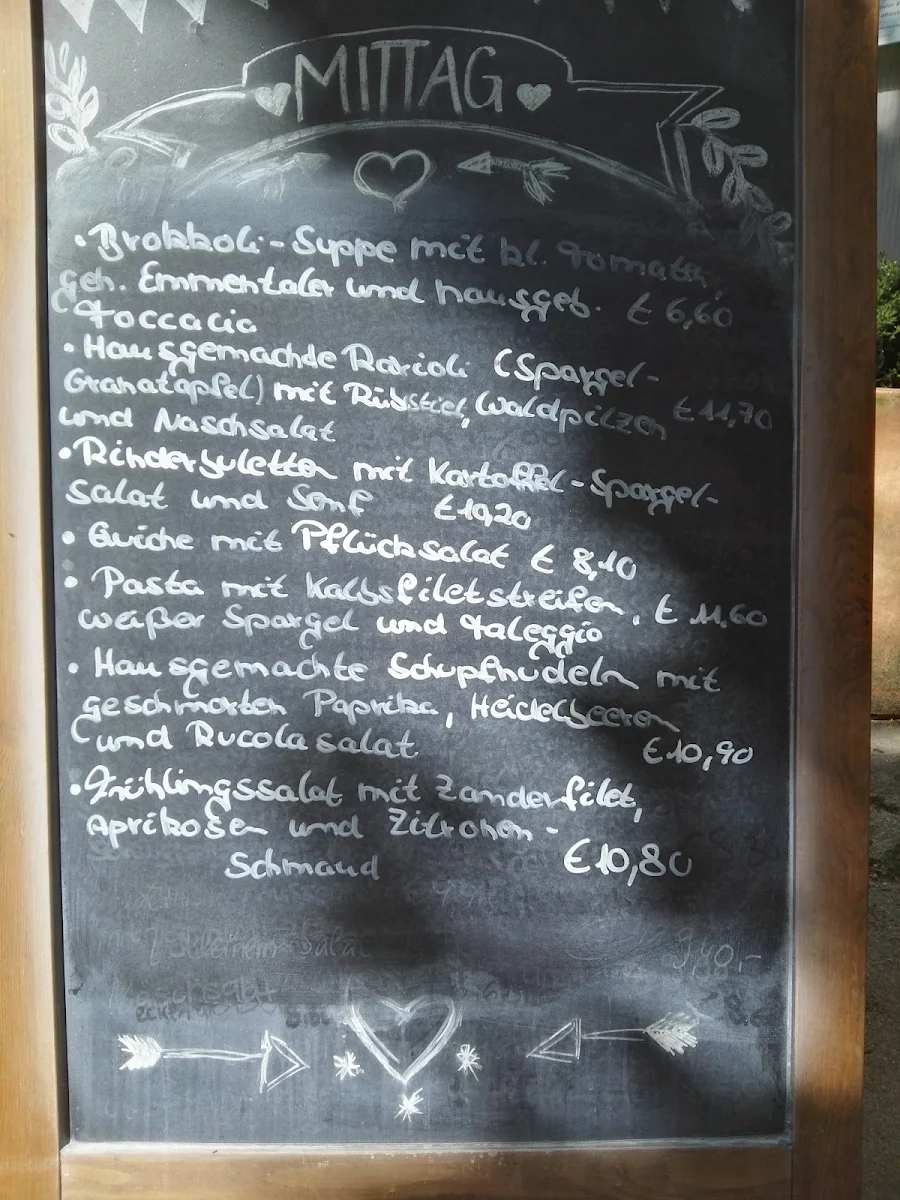 MITTAG
• Brokkoli-Suppe mit kl. Tomaten,
geh. Emmentaler und hausgeb. € 6,60
Foccacia
• Hausgemachde Ravioli (Spargel-
Granatapfel) mit Rübstiel, Waldpilzen € 11,70
und Naschsalat
• Rinderbuletten mit Kartoffel-Spargel-
Salat und Senf € 10,20
• Quiche mit Pflücksalat € 8,10
• Pasta mit Kalbsfiletstreifen, € 11,60
weißer Spargel und Taleggio
• Hausgemachte Schupfnudeln mit
geschmorten Paprika, Heidelbeeren
und Rucolasalat € 10,90
• Frühlingssalat mit Zanderfilet,
Aprikosen und Zitronen-
Schmand € 10,80